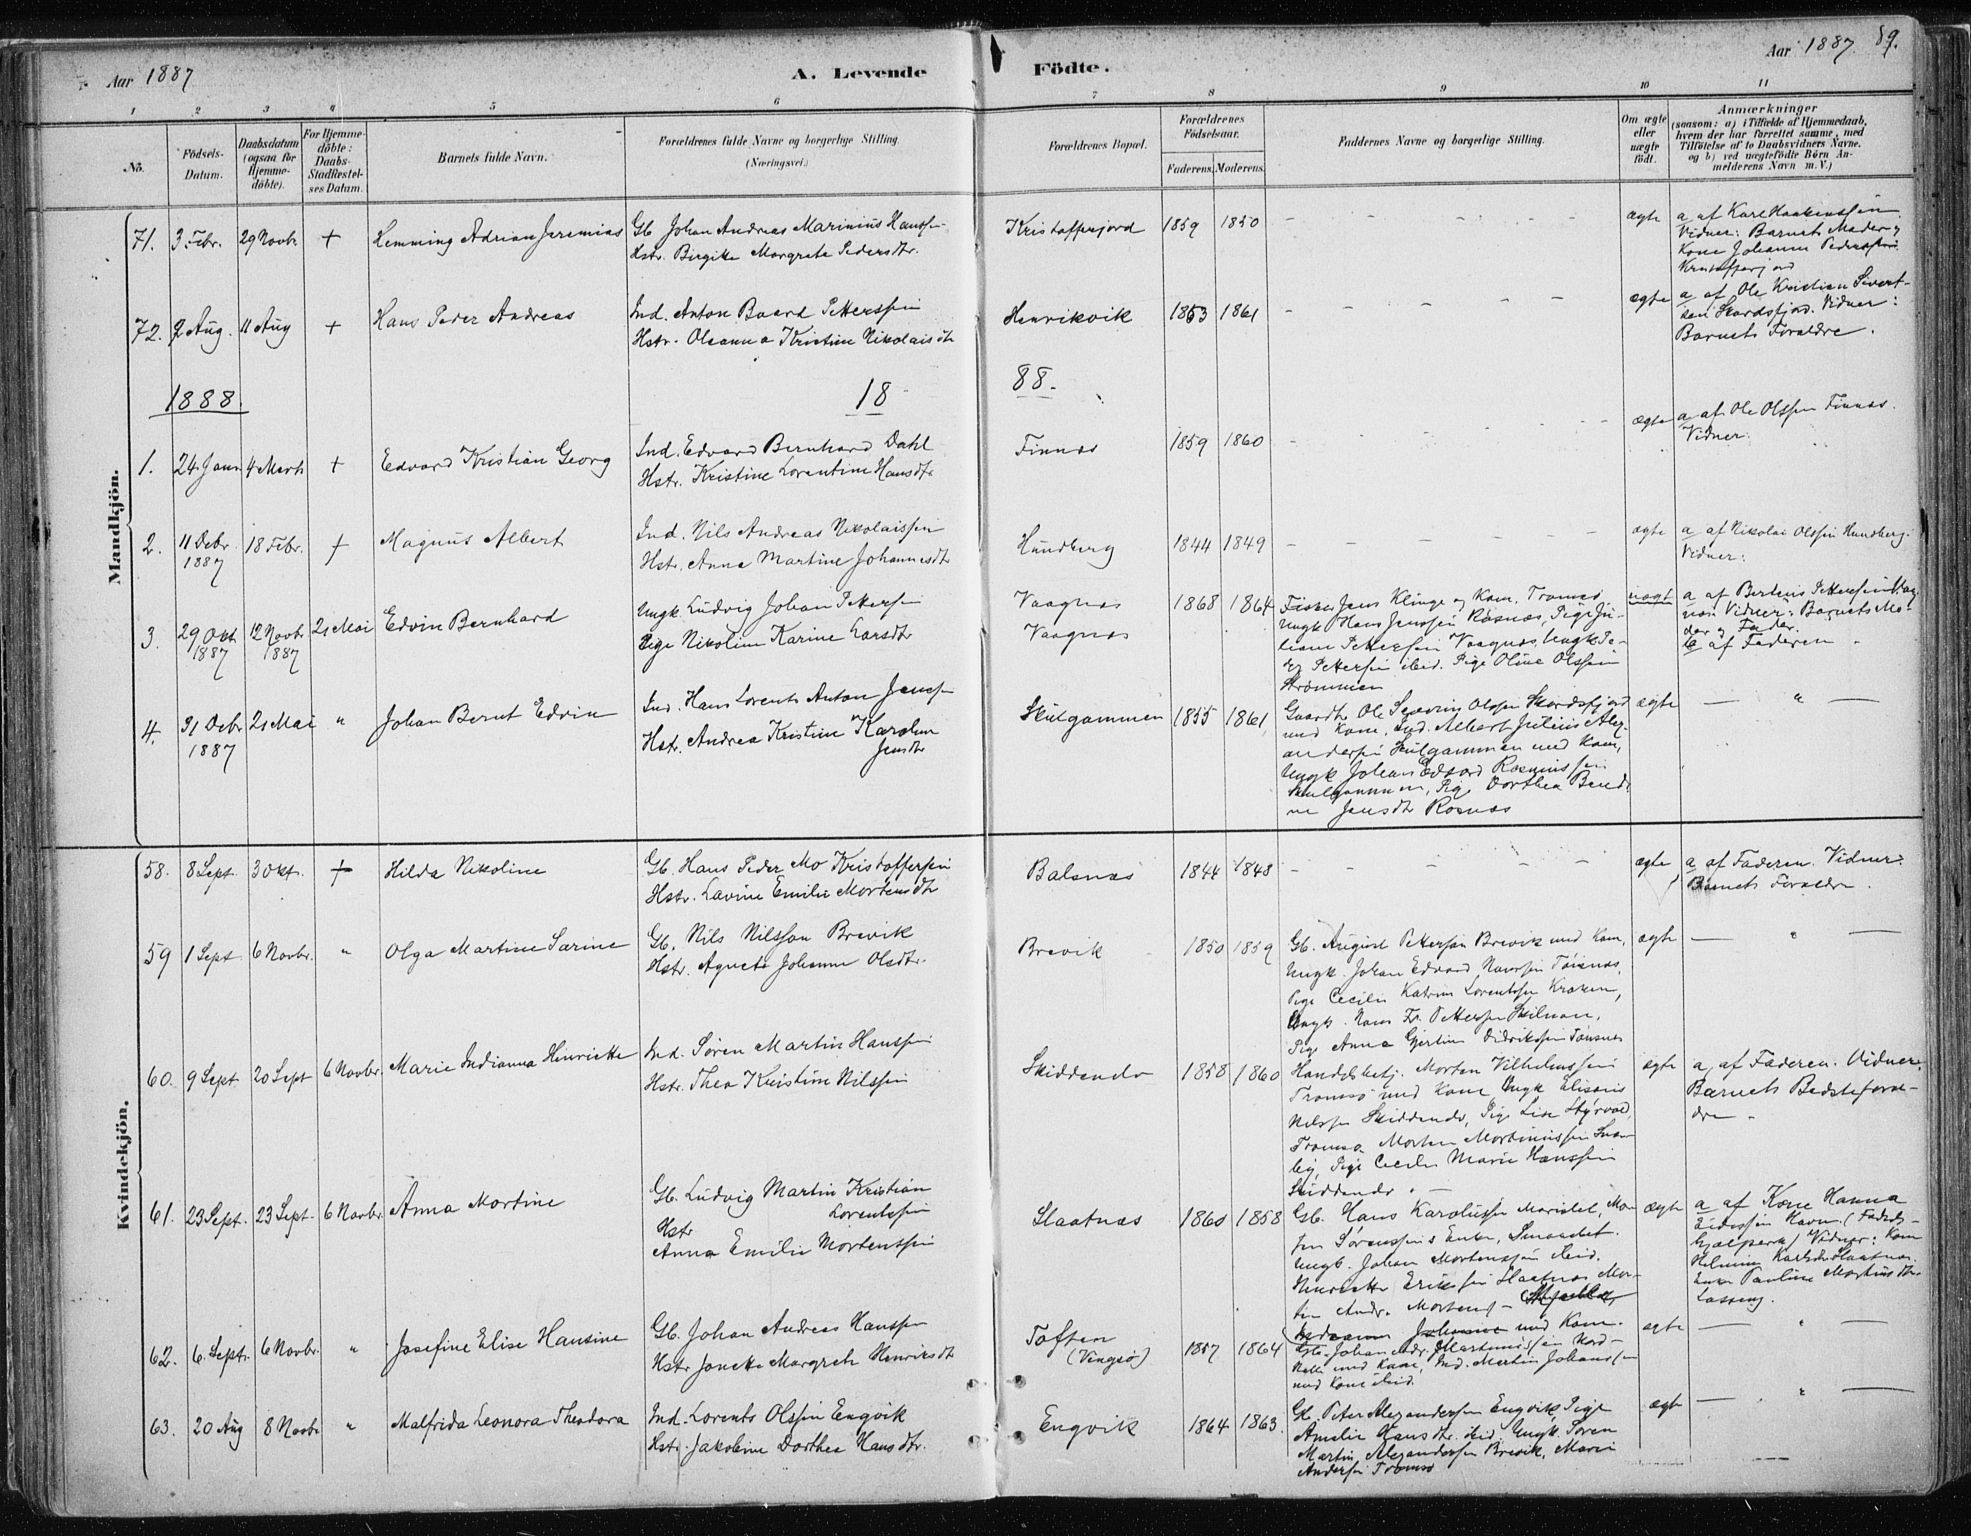 Aar 1887
A. Levende Födte.
Aar 1887. 89.
1 2 3 4 5 6 7 8 9 10 11
No.
Födsels-Datum.
Daabsdatum (ogsaa for Hjemmedöbte).
For Hjemmedöbte: Daabs-Stadfestelses Datum.
Barnets fulde Navn.
Forældrenes fulde Navne og borgerlige Stilling (Næringsvei.)
Forældrenes Bopæl.
Forældrenes Födselsaar.
Faderens. Moderens.
Faddernes Navne og borgerlige Stilling.
Om ægte eller uægte födt.
Anmærkninger
(saasom: a) i Tilfælde af Hjemmedaab, hvem der har forrettet samme, med Tilföielse af to Daabsvidners Navne, og b) ved uægtefödte Börn Anmelderens Navn m. V.)
Mandkjön.
71. 3. Febr. 29 Novbr. + Hemming Adrian Jeremias
Gb. Johan Andreas Marinius Hanssen
Hstr. Birgitte Margrete Pedersdtr.
Kristoffersjord 1859 1850
ægte
a af Karl Haakenssen
Vidner: Barnets Moder og
Kone Johanne
72. 2 Aug. 11 Aug + Hans Peder Andreas
Ind. Anton Baard Pettersen
Hstr. Oleanna Kristine Nikolaisdtr
Henrikvik 1853 1861
ægte
a af Ole Kristian Sivert-
sen Skardsfjord. Vidner:
Barnets Forældre.
1888. 18 88.
1. 24 Janr 4 Marts + Edvard Kristian Georg
Ind. Edvard Bernhard Dahl
Hstr. Kristine Lorentine Hansdtr
Finnæs 1859 1860
ægte
a af Ole Olssen Finnæs.
Vidner:
2. 11 Debr. 1887 18 Febr. + Magnus Albert
Ind. Nils Andreas Nikolaissen
Hstr. Anne Martine Johannesdtr
Hundberg 1844 1849
ægte
a af Nikolai Olssen Hundberg.
Vidner:
3. 29 Okt 1887 12 Novbr 1887 21 Mai Edvin Bernhard
Ungk. Ludvig Johan Pettersen
Pige Nikoline Karine Larsdtr
Vaagnæs
Vaagnæs
1868 1864
Fisker Jens Klinge og Kone, Tromsø,
Ungk Hans Jenssen Rösnæs, Pige Ju-
liane Pettersen Vaagnæs, Ungk Pe-
der Pettersen ibid. Pige Oline Olssen
Strømmen
uægte
a af Pettersen Vaag-
næs Vidner: Barnets Mo-
der og Fader.
b af Faderen
4. 31 Debr 1887 21 Mai " Johan Bernt Edvin
Ind. Hans Lorents Anton Jenssen
Hstr. Andrea Kristine Karoline
Jensdtr
Skulgammen 1855 1861
Gaardbr Ole Severin Olssen Skardsfjord
med Kone, Ind. Albert Julius Alex-
andersen Skulgammen med Kone,
Ungk Johan Edvard Rasmussen
Skulgammen, Pige Dorthea Bendi-
ne Jensdtr Rösnæs
ægte — " —
Kvindekjön.
58. 8 Sept. 3 Okt. + Hilda Nikoline
Gb. Hans Peder Mo Kristoffersen
Hstr. Lavine Emilie Mortensdtr
Balsnæs 1844 1848
ægte
a af Faderen. Vidner:
Barnets Forældre.
59 1 Sept 6 Novbr. " Olga Martine Sarine
Gb. Nils Nilssen Brevik
Hstr. Agnete Johanne Olsdtr.
Brevik 1850 1859
Gb. August Pettersen Brevik med Kone,
Ungk. Johan Edvard Tøisnæs,
Pige Cecilie Katrine Lorentssen Kraken,
Ungk. Hans Fr. Pettersen
Pige Anna Gjertine Didrikssen Tønsnes
ægte — " —
60. 9 Sept 20 Sept 6 Novbr. Marie Indianna Henriette
Ind. Søren Martin Hanssen
Hstr. Thea Kristine Nilssen
Skiddendv 1858 1860
Handelsbetj. Morten Vilhelmssen
Tromsö med Kone, Ungk
Nilssen Skiddendv, Pige Lise
Tromsø, Morten Mortinussen
Pige Cecilie Marie Hanssen
Skiddendv.
ægte
a, af Faderen. Vidner:
Barnets Bedstefor-
dre.
61. 23 Sept. 23 Sept. 6 Novbr. Anna Mortine
Gb. Ludvig Martin Kristian
Lorentssen
Hstr
Anna Emilie Mortenssen
Slaatnæs 1860 1858
Gb. Hans Karolussen Mor-
ten Sørenssens Enke,
Ungk. Johan Mortenssen ibid.
Henriette Erikssen Slaatnæs, Mor-
ten Andr. Mortens-
med Kone.
ægte
a af Kone Hanna
Havn. (Føds-
hjælpersk) Vidner: Kone
Slaatnæs.
Enke Pauline
62. 6. Sept. 6 Novbr. " Josefine Elise Hansine
Gb. Johan Andreas Hanssen
Hstr Jonette Margrete Henriksdtr
Toften
(Vengsø)
1857 1864
Gb. Johan Andr. Martinussen
med Kone, Ind. Martin Johanssen
med Kone ibid.
ægte — " —
63. 20 Aug 8 Novbr " Malfrida Leonora Theodora
Ind. Lorents Olssen Engvik
Hstr. Jakobine Dorthea Hansdtr.
Engvik 1864 1863.
Gb. Peter Alexandersen Engvik, Pige
Amalie Hansdtr. ibid, Ungk. Søren
Martin Alexandersen Brevik, Marie
Andersen Tromsø
ægte — " —